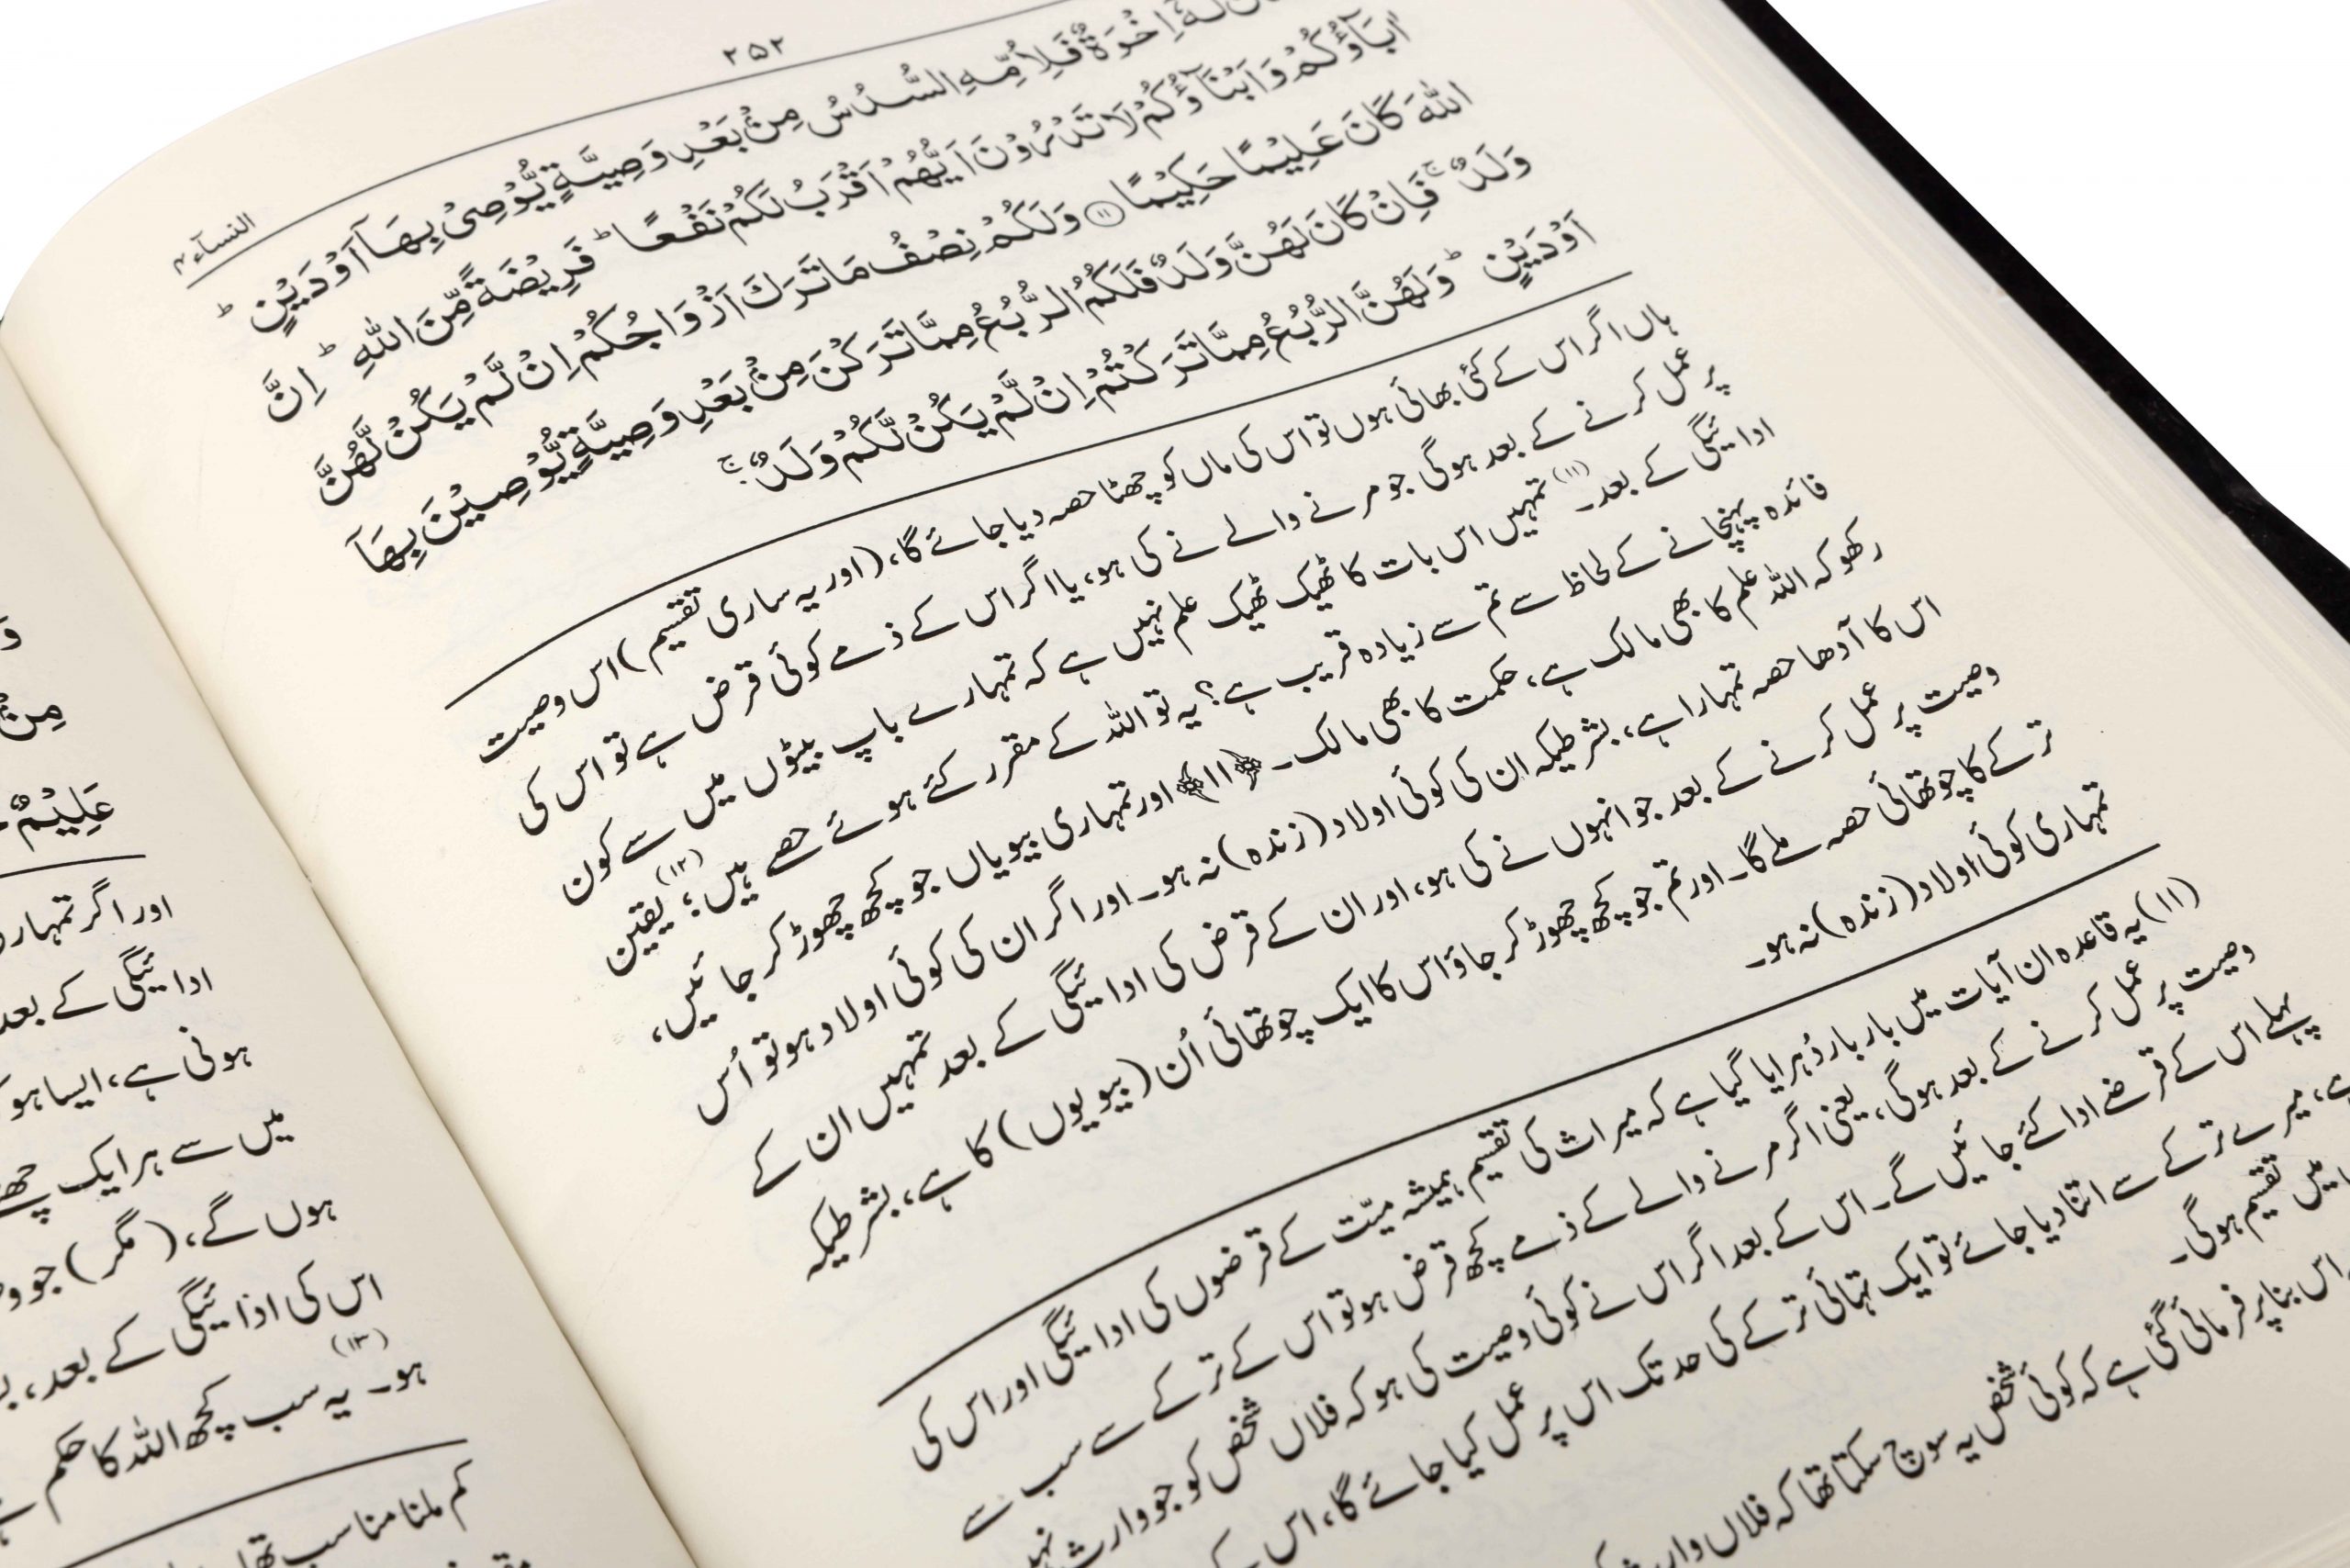 ۲۵۲
النسآء ۴
اِخْوَةٌ فَلِاُمِّهِ السُّدُسُ مِنْۢ بَعْدِ وَصِیَّةٍ یُّوْصِیْ بِهَاۤ اَوْ دَیْنٍ ؕ
اٰبَآؤُكُمْ وَ اَبْنَآؤُكُمْ لَا تَدْرُوْنَ اَیُّهُمْ اَقْرَبُ لَكُمْ نَفْعًا ؕ فَرِیْضَةً مِّنَ اللّٰهِ ؕ اِنَّ
اللّٰهَ كَانَ عَلِیْمًا حَكِیْمًا ﴿۱۱﴾ وَ لَكُمْ نِصْفُ مَا تَرَكَ اَزْوَاجُكُمْ اِنْ لَّمْ یَكُنْ لَّهُنَّ
وَلَدٌ ۚ فَاِنْ كَانَ لَهُنَّ وَلَدٌ فَلَكُمُ الرُّبُعُ مِمَّا تَرَكْنَ مِنْۢ بَعْدِ وَصِیَّةٍ یُّوْصِیْنَ بِهَاۤ
اَوْ دَیْنٍ ؕ وَ لَهُنَّ الرُّبُعُ مِمَّا تَرَكْتُمْ اِنْ لَّمْ یَكُنْ لَّكُمْ وَلَدٌ ۚ
ہاں اگر اس کے کئی بھائی ہوں تو اس کی ماں کو چھٹا حصہ دیا جائے گا، (اور یہ ساری تقسیم) اس وصیت
پر عمل کرنے کے بعد ہوگی جو مرنے والے نے کی ہو، یا اگر اس کے ذمے کوئی قرض ہے تو اس کی
ادائیگی کے بعد۔(۱۱) تمہیں اس بات کا ٹھیک ٹھیک علم نہیں ہے کہ تمہارے باپ بیٹوں میں سے کون
فائدہ پہنچانے کے لحاظ سے تم سے زیادہ قریب ہے؟ یہ تو اللہ کے مقرر کئے ہوئے حصے ہیں؛(۱۲) یقین
رکھو کہ اللہ علم کا بھی مالک ہے، حکمت کا بھی مالک۔ ﴿۱۱﴾ اور تمہاری بیویاں جو کچھ چھوڑ کر جائیں،
اس کا آدھا حصہ تمہارا ہے، بشرطیکہ ان کی کوئی اولاد (زندہ) نہ ہو۔ اور اگر ان کی کوئی اولاد ہو تو اُس
وصیت پر عمل کرنے کے بعد جو انہوں نے کی ہو، اور ان کے قرض کی ادائیگی کے بعد تمہیں ان کے
ترکے کا چوتھائی حصہ ملے گا۔ اور تم جو کچھ چھوڑ کر جاؤ اس کا ایک چوتھائی اُن (بیویوں) کا ہے، بشرطیکہ
تمہاری کوئی اولاد (زندہ) نہ ہو۔
(۱۱) یہ قاعدہ ان آیات میں بار بار دُہرایا گیا ہے کہ میراث کی تقسیم ہمیشہ میّت کے قرضوں کی ادائیگی اور اس کی
وصیت پر عمل کرنے کے بعد ہوگی، یعنی اگر مرنے والے کے ذمے کچھ قرض ہو تو اس کے ترکے سے سب سے
پہلے اس کے قرضے ادا کئے جائیں گے۔ اس کے بعد اگر اس نے کوئی وصیت کی ہو کہ فلاں شخص کو جو وارث
میرے ترکے سے اتنا دیا جائے تو ایک تہائی ترکے کی حد تک اس پر عمل کیا جائے گا، اس کے
میں تقسیم ہوگی۔
اس بنا پر فرمائی گئی ہے کہ کوئی شخص یہ سوچ سکتا تھا کہ فلاں
مِنْۢ
عَلِیْمٌ
اور اگر تمہارے
ادائیگی کے بعد
ہوتی ہے، ایسا ہو
میں سے ہر ایک
ہوں گے، (مگر) جو
اس کی ادائیگی کے بعد،
ہو۔(۱۳) یہ سب کچھ اللہ کا حکم
کم ملنا مناسب